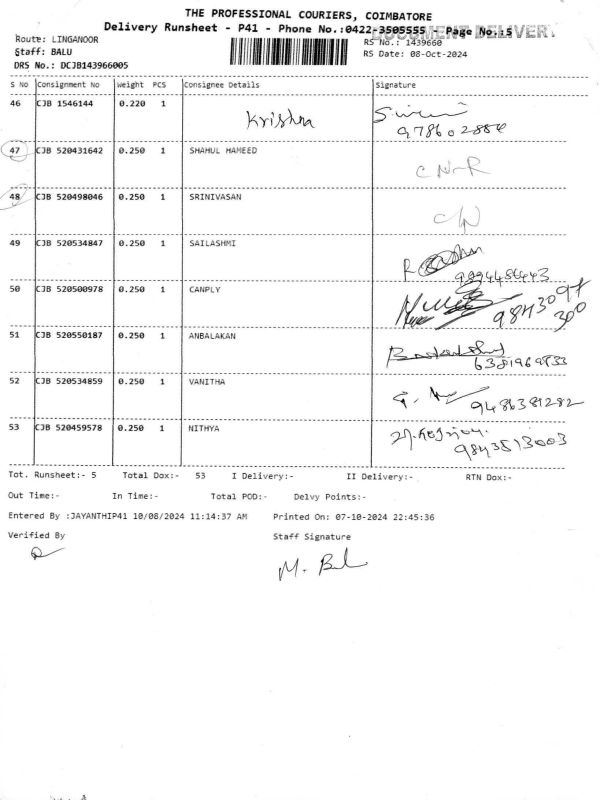 THE PROFESSIONAL COURIERS, COIMBATORE
Delivery Runsheet - P41 - Phone No.:0422-3505555 - Page No.:5
DOCUMENT DELIVERY
Route: LINGANOOR
RS No.: 1439660
Staff: BALU
RS Date: 08-Oct-2024
DRS No.: DCJB143966005
S No Consignment No Weight PCS Consignee Details Signature
46 CJB 1546144 0.220 1 Krishna
978602884
47 CJB 520431642 0.250 1 SHAHUL HAMEED
CN-R
48 CJB 520498046 0.250 1 SRINIVASAN
C/N
49 CJB 520534847 0.250 1 SAILASHMI
50 CJB 520500978 0.250 1 CANPLY
98430 97
300
51 CJB 520550187 0.250 1 ANBALAKAN
52 CJB 520534859 0.250 1 VANITHA
9486381282
53 CJB 520459578 0.250 1 NITHYA
9843513003
Tot. Runsheet:- 5 Total Dox:- 53 I Delivery:- II Delivery:- RTN Dox:-
Out Time:- In Time:- Total POD:- Delvy Points:-
Entered By :JAYANTHIP41 10/08/2024 11:14:37 AM Printed On: 07-10-2024 22:45:36
Verified By Staff Signature